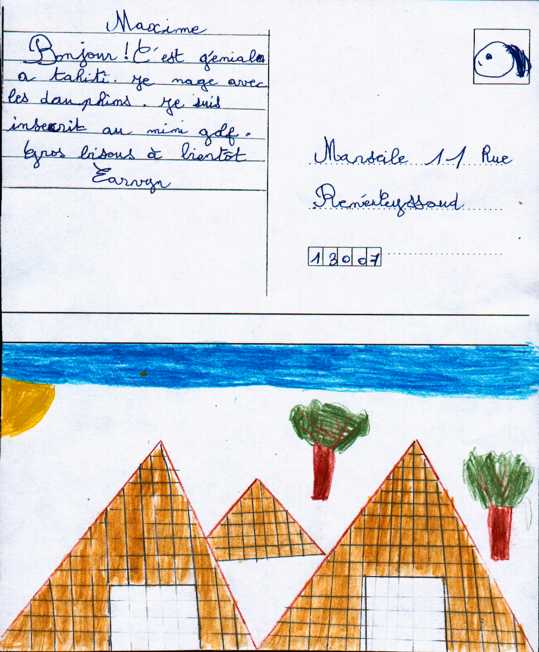 Maxime
Bonjour ! C'est génial
a tahiti. je nage avec
les dauphims. je suis
inscrit au mini golf.
Gros bisous à bientôt
Earvyn
Marseile 11 Rue
13007